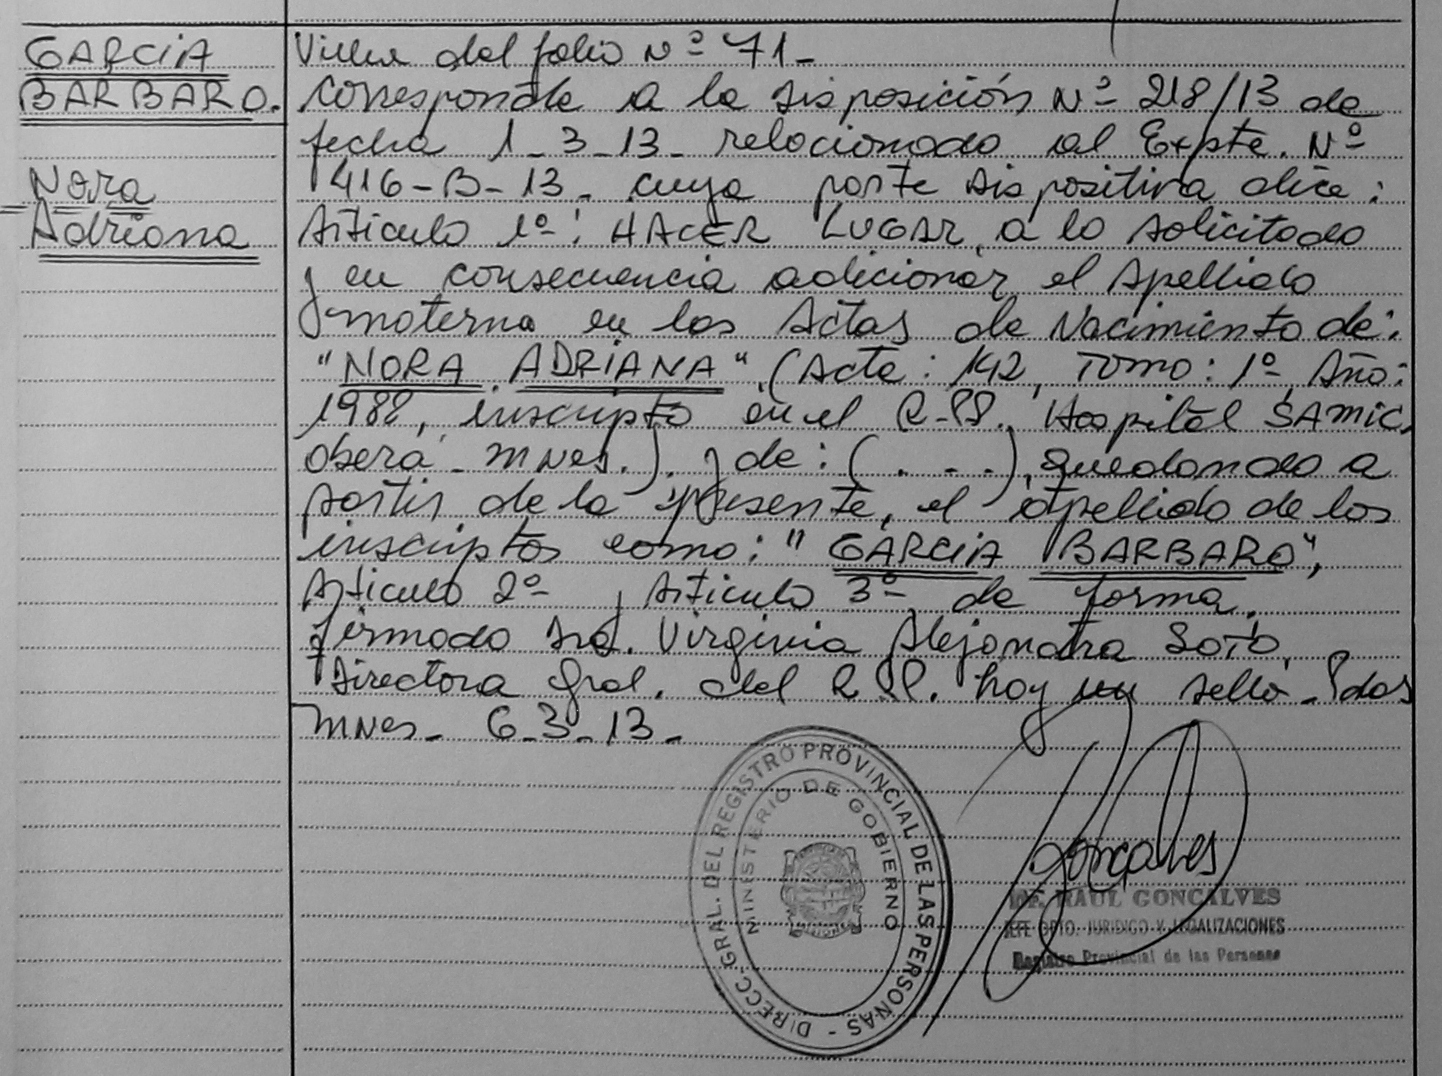 GARCIA
BARBARO.
Nora
Adriana
Viene del folio Nº 71-
Corresponde a la disposición Nº 218/13 de
fecha 1-3-13- relacionado al Expte. Nº
1416-B-13- cuya parte dispositiva dice:
Artículo 1º: HACER LUGAR, a lo solicitado
y en consecuencia adicionar el Apellido
materno en las Actas de Nacimiento de:
"NORA ADRIANA" (Acta: 142, Tomo: 1º, Año:
1988, inscripto en el R.P.P. Hospital SAMIC.
Oberá - Mnes.). y de: (...), quedando a
partir de la presente, el apellido de los
inscriptos como: "GARCIA BARBARO",
Artículo 2º y Artículo 3º de forma.
firmado Dra. Virginia Alejandra SOTO,
Directora Gral. del R.P.P. hay un sello - Pdas
Mnes- 6-3-13-
DIRECC. GRAL. DEL REGISTRO PROVINCIAL DE LAS PERSONAS -
MINISTERIO DE GOBIERNO
MISIONES
Gonçalves
RAUL GONCALVES
JEFE DPTO. JURIDICO Y LEGALIZACIONES
Registro Provincial de las Personas